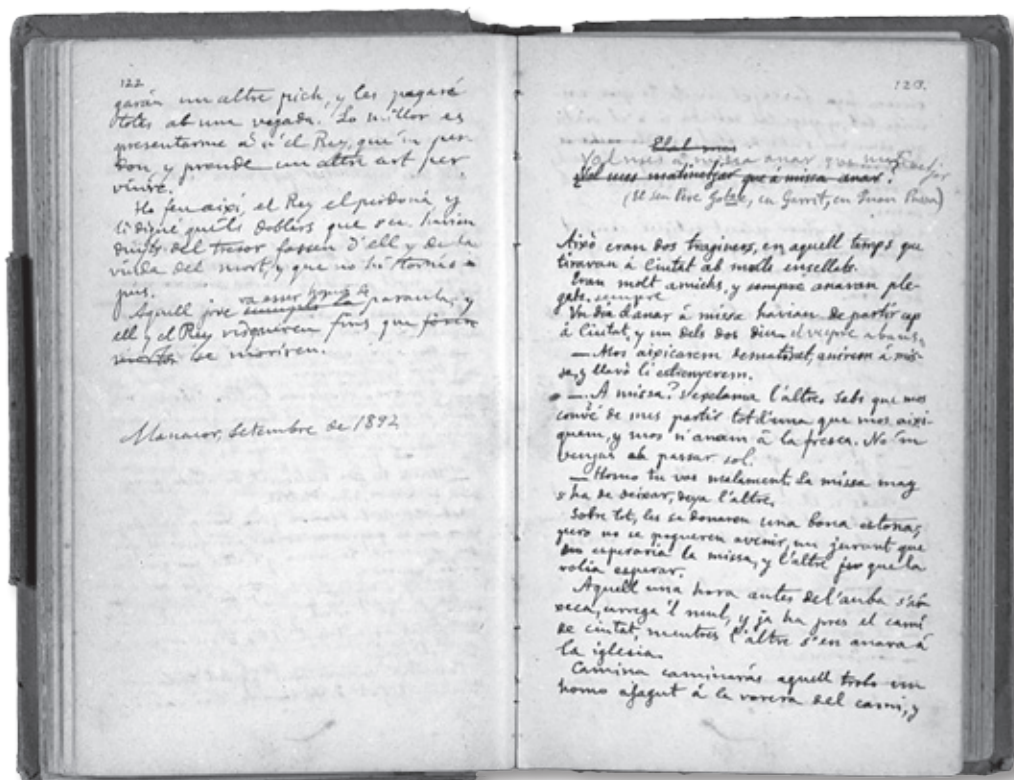 122
garán un altre pich, y les pagaré
totes ab una vegada. Lo millor es
presentarme a n'el Rey, que'm per-
don, y prende un altre art per
viure.
Ho feu aixi, el Rey el perdoná, y
li digué qu'els doblers que s'en havian
duyts del tresor fossen d'ell y de la
viuda del mort, y que no hi tornás
pus.
Aquell jove va esser homo de paraula, y
ell y el Rey visqueren fins que foren
morts se moriren.
Manacor, Setembre de 1892
123.
Val mes á missa anar que
Val mes matinetjar que á missa anar.
(El sen Pere Gotze, en Garrit, en Juan)
Aixó eran dos traginers, en aquell temps que
tiravan á Ciutat ab molts ensellats.
Eran molt amichs, y sempre anavan ple-
gats. sempre
Un dia d'anar á missa havian de partir cap
á Ciutat, y un dels dos diu el vespre abans,
— Mos aixicarem dematinet, anirem á mis-
sa, y llavó li estrenyerem.
— A missa? s'exclama l'altre. Sabs que mos
convé de mes partir tot d'una que mos aixi-
quem, y mos n'anam á la fresca. No 'm
vengas ab passar sol.
— Homo tu vas malament. La missa may
s'ha de deixar, deya l'altre.
Sobre tot, les se donaren una bona estona,
pero no se pogueren avenir, un jurant que
no esperaria la missa, y l'altre que la
volia esperar.
Aquell una hora antes de l'auba s'ai-
xeca, arrega 'l mul, y ja ha pres el camí
de ciutat, mentres l'altre s'en anava á
la iglesia.
Camina caminarás aquell troba un
homo ajagut á la vorera del camí, y